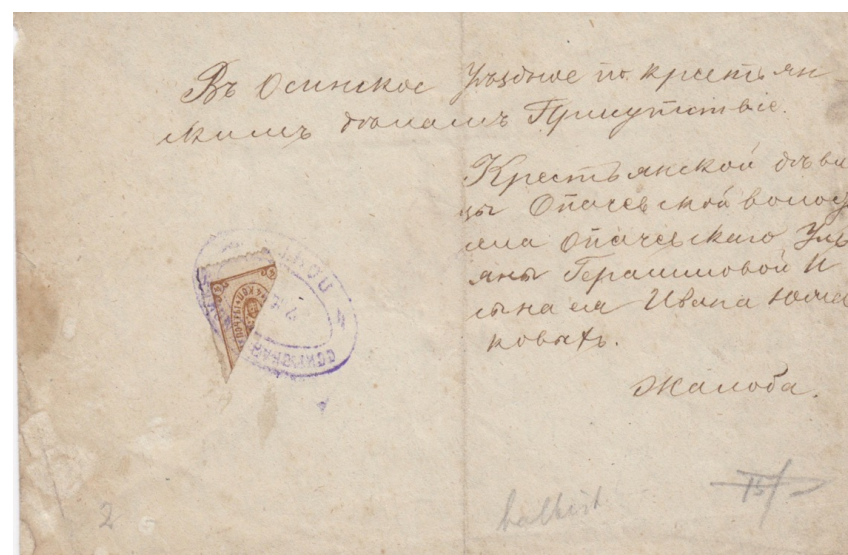 Въ Осинское Уѣздное по крестьян
скимъ дѣламъ Присутствіе.
Крестьянской дѣви
цы Опачевской волос
села Опачевскаго Уль
яны Герасимовой И
сына ея Ивана Юша
ковыхъ.
Жалоба.
ПОЧТА
2 halbiert 15/-